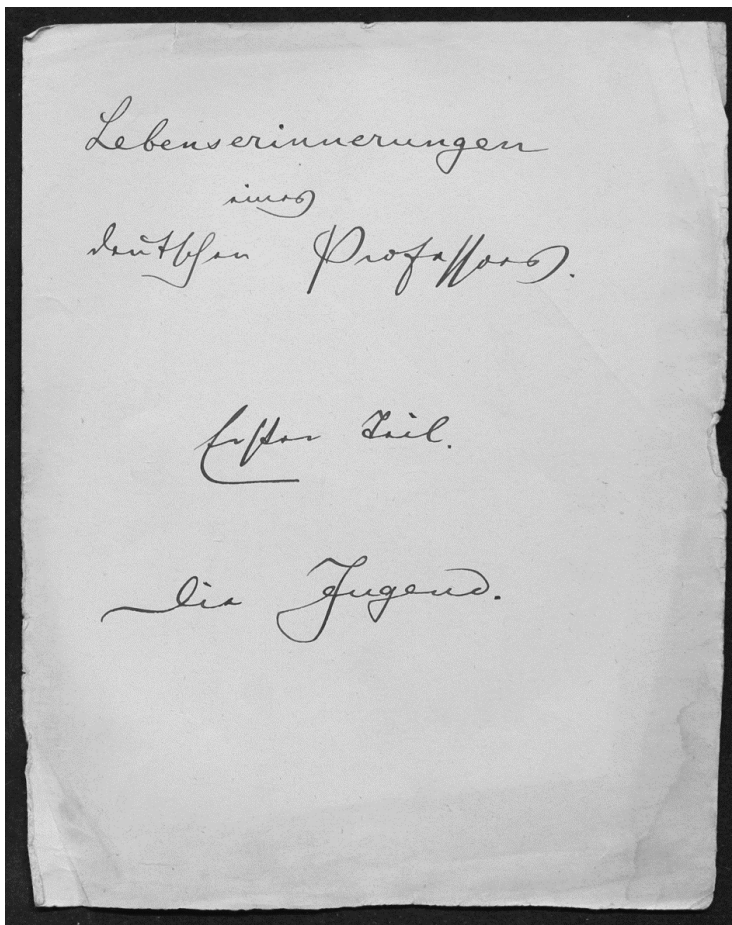 Lebenserinnerungen
eines
deutschen Professors.
Erster Teil.
Die Jugend.